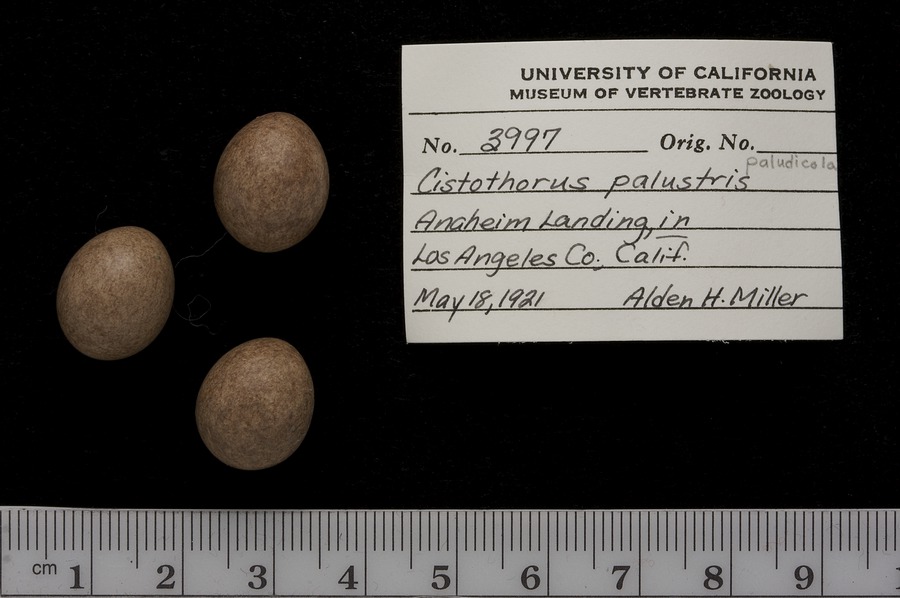 UNIVERSITY OF CALIFORNIA
MUSEUM OF VERTEBRATE ZOOLOGY
No. 3997 Orig. No.
paludicola
Cistothorus palustris
Anaheim Landing, in
Los Angeles Co., Calif.
May 18, 1921 Alden H. Miller
cm 1 2 3 4 5 6 7 8 9 1